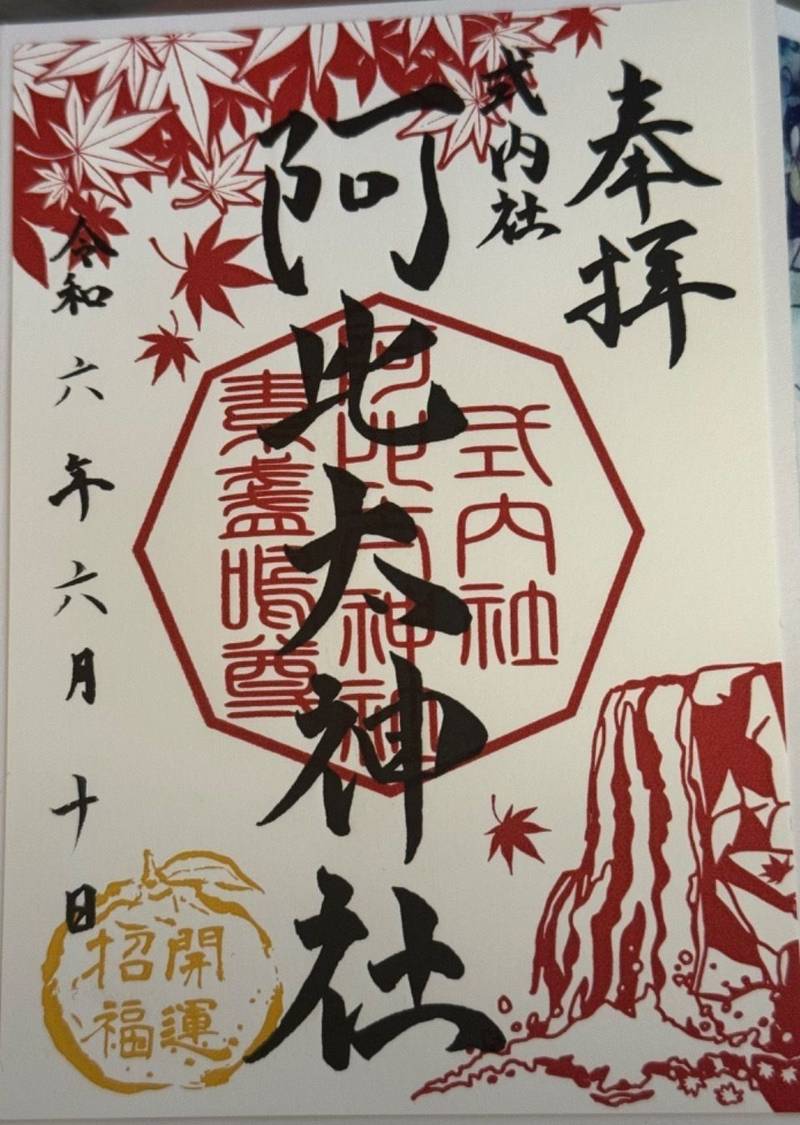 奉拝
式内社
阿比大神社
式内社
阿比大神社
素盞嗚尊
令和六年六月十日
開運
招福